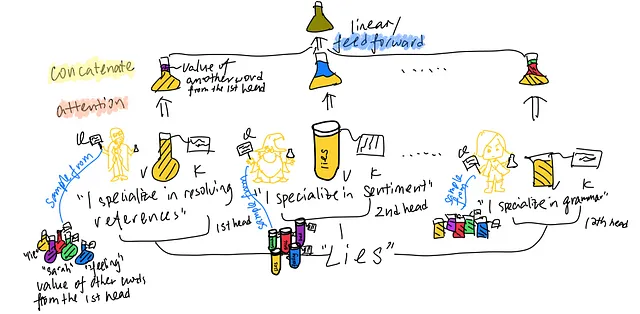 linear/
feedforward
concatenate
value of
another word
from the 1st head
attention
Q
K
V
sample from
"I specialize in resolving
references"
1st head
"sarah"
"feeling"
value of other words
from the 1st head
Q
lies
V
K
sample from
"I specialize in sentiment"
2nd head
"Lies"
Q
V
K
sample from
"I specialize in grammar"
12th head